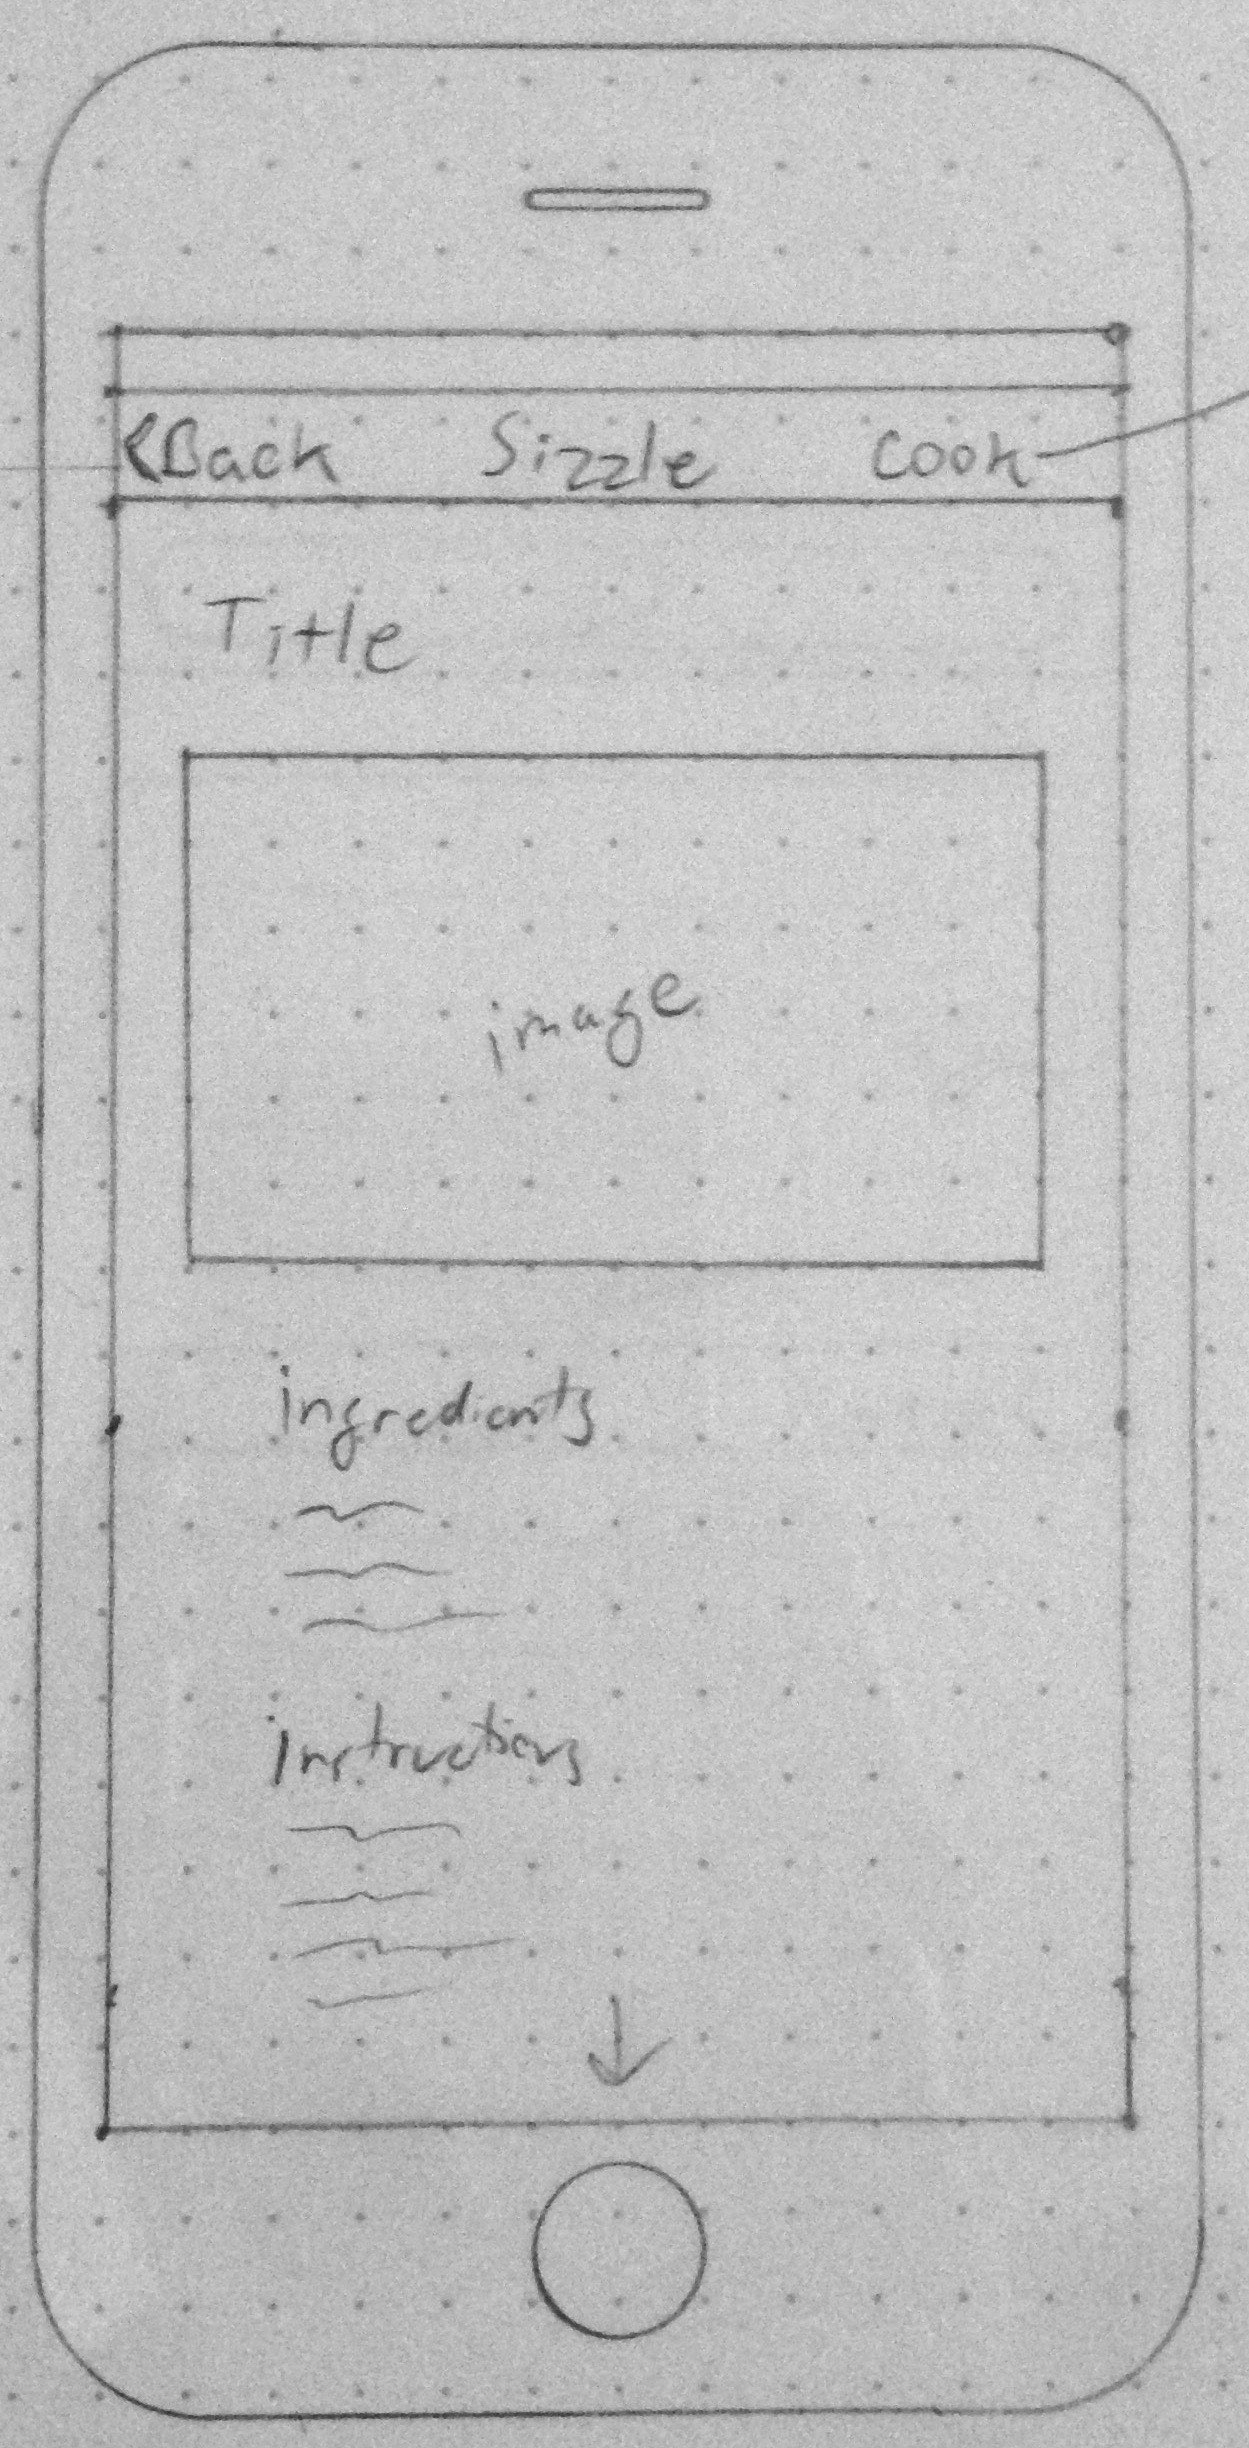 <Back Sizzle Cook
Title
image
ingredients
instructions